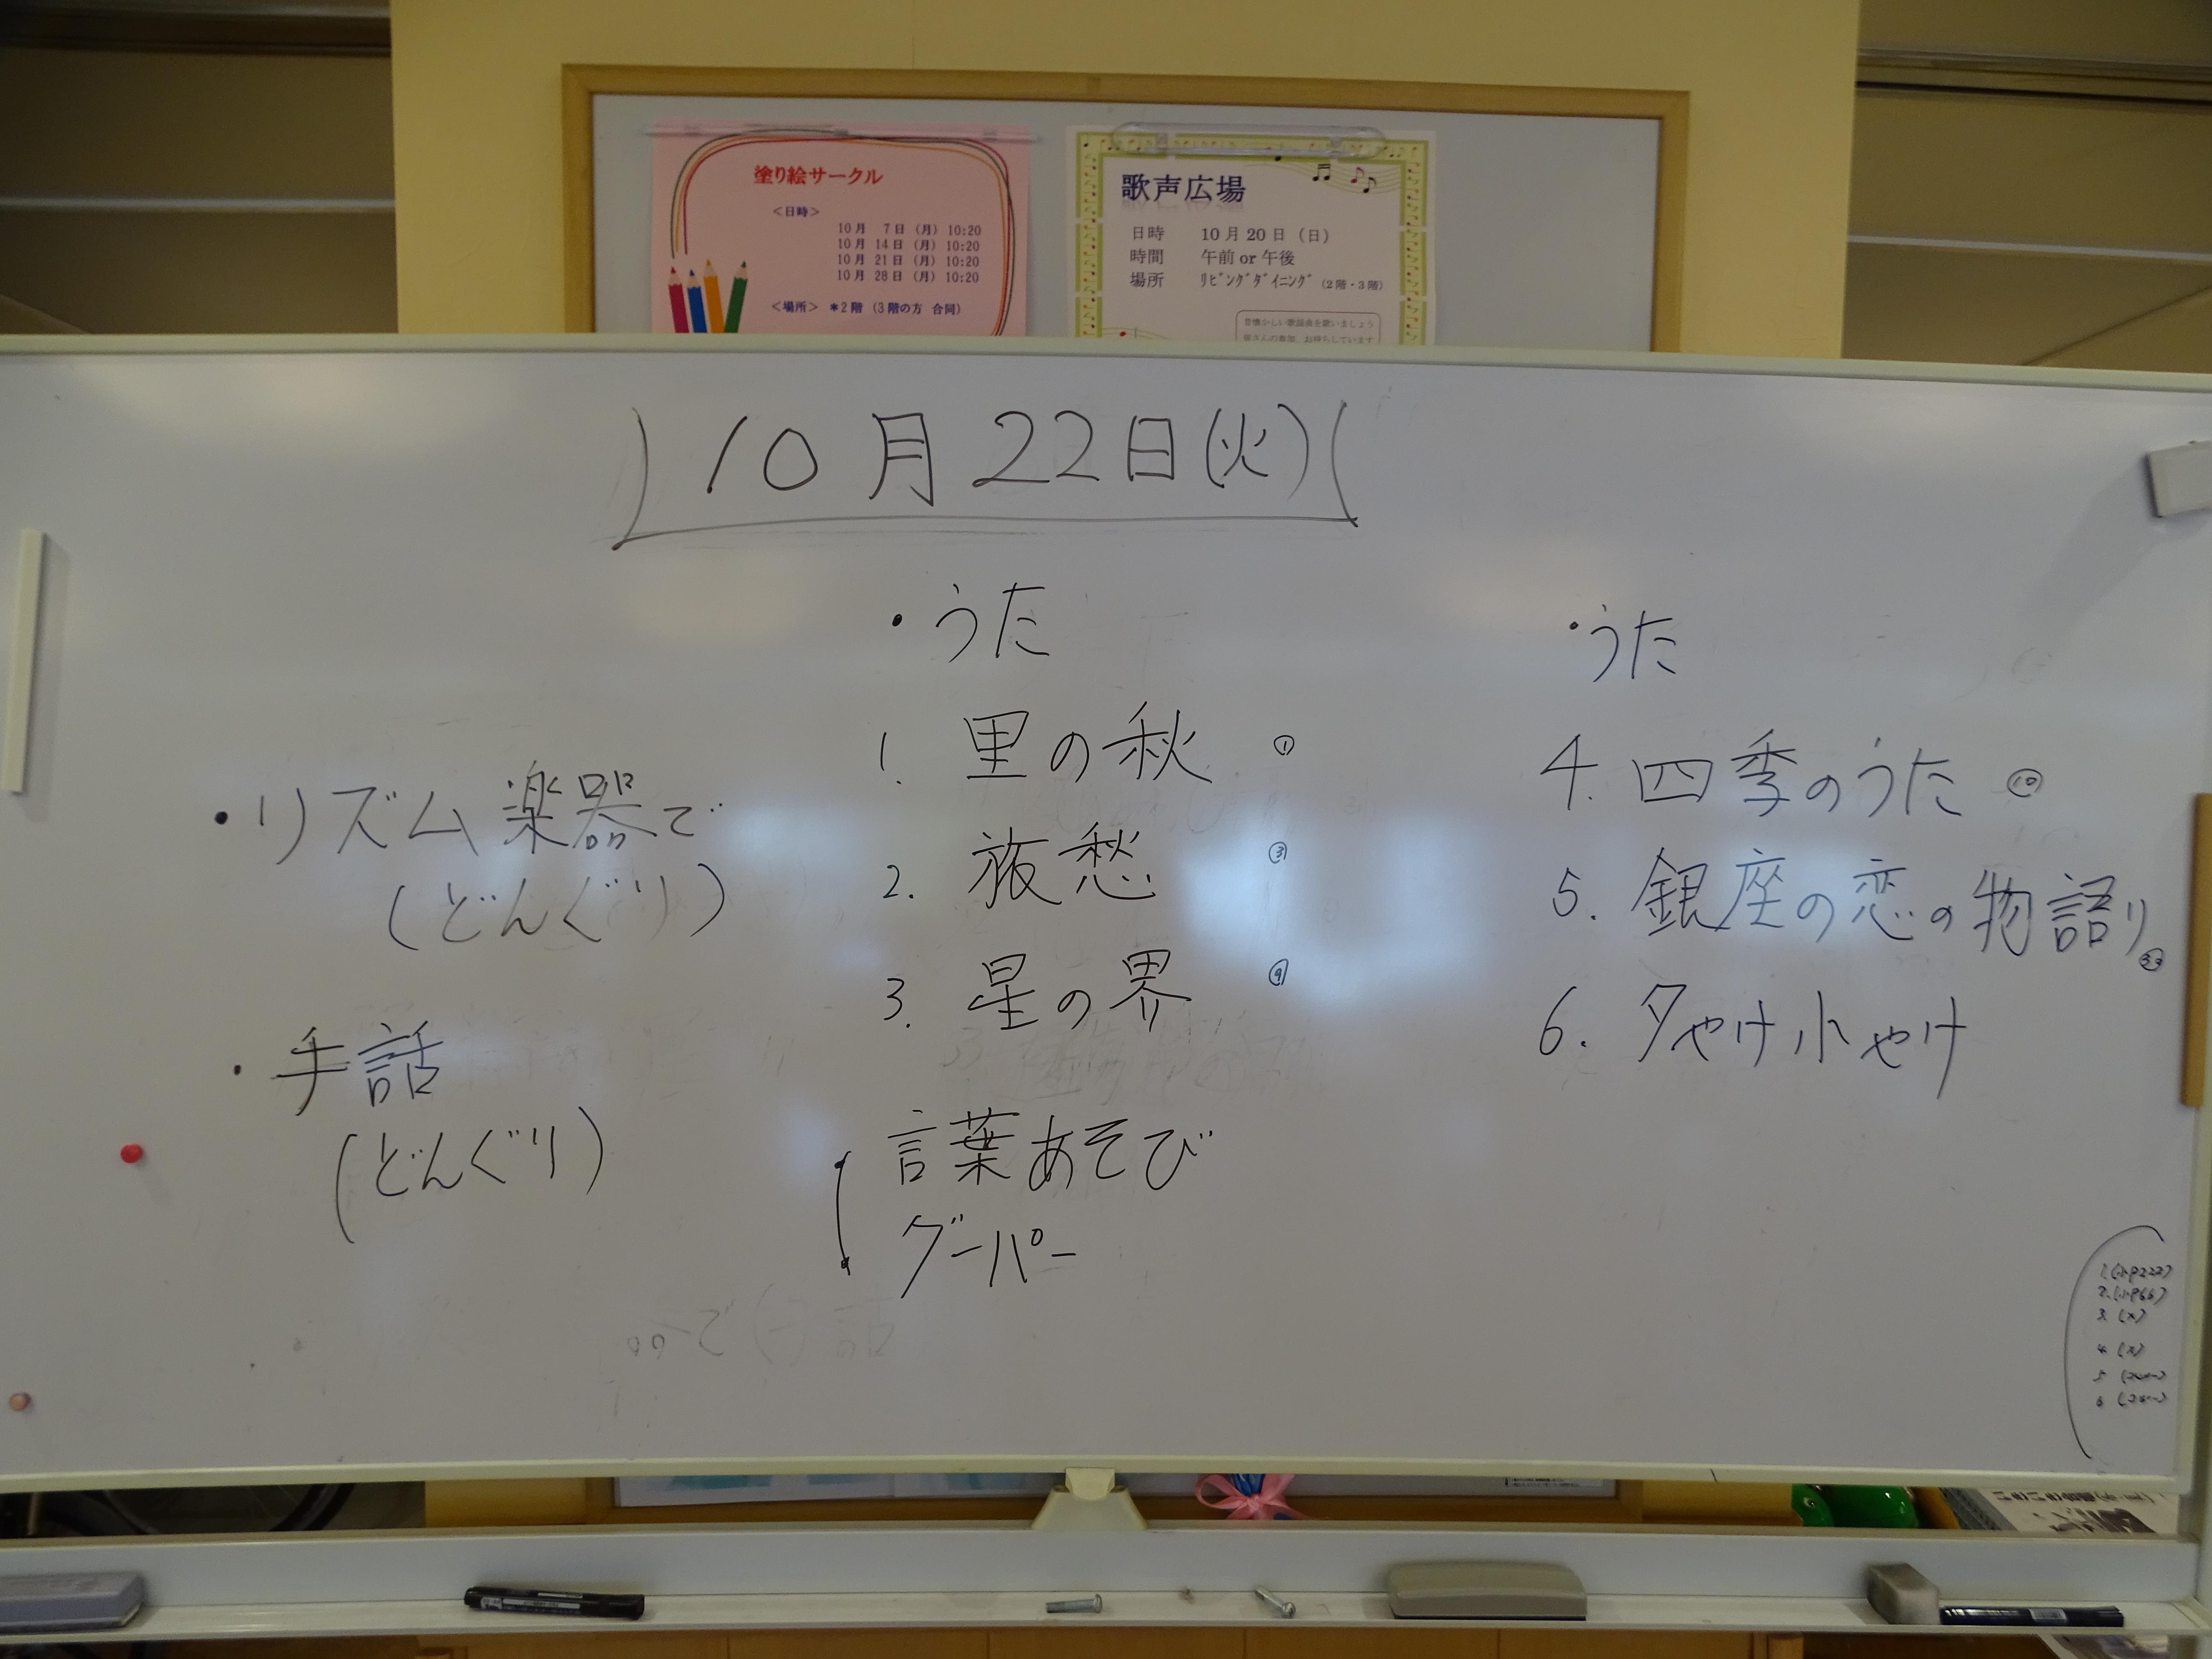 塗り絵サークル
＜日時＞
10月 7日（月）10:20
10月 14日（月）10:20
10月 21日（月）10:20
10月 28日（月）10:20
＜場所＞ ＊2階（3階の方 合同）
歌声広場
日時 10月20日（日）
時間 午前or午後
場所 ﾘﾋﾞﾝｸﾞﾀﾞｲﾆﾝｸﾞ（2階・3階）
昔懐かしい歌謡曲を歌いましょう
皆さんの参加、お待ちしています
10月22日(火)
・リズム楽器で
(どんぐり)
・手話
(どんぐり)
・うた
1. 里の秋 ①
2. 旅愁 ③
3. 星の界 ⑨
言葉あそび
グーパー
・うた
4. 四季のうた ⑩
5. 銀座の恋の物語り ㉝
6. 夕やけ小やけ
1. (小P222)
2. (小P66)
3. (×)
4. (×)
5
6